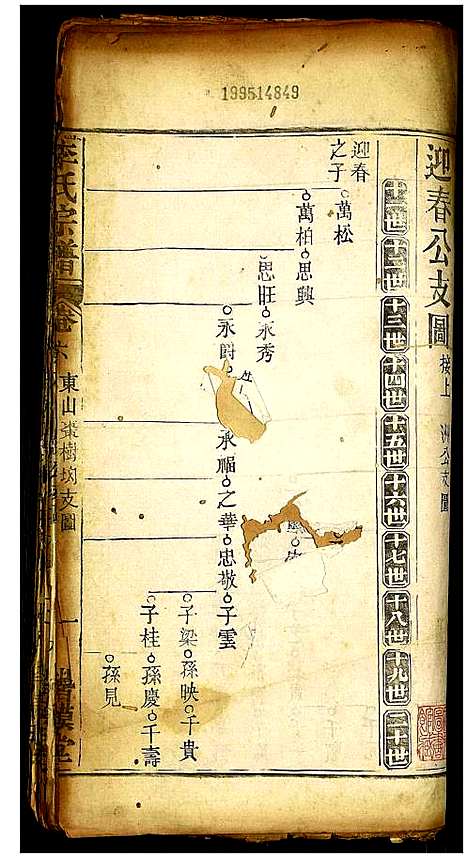 199514849
迎春公支圖 接上 洲公支圖
十一世 十二世 十三世 十四世 十五世 十六世 十七世 十八世 十九世 二十世
迎春之子
萬松
萬柏 思興
思旺 永秀
永爵
承福 之華 忠敬 子雲
子梁 孫映 千貴
子桂 孫慶 千壽
孫見
李氏宗譜
卷六
東山棗樹㘭支圖
一